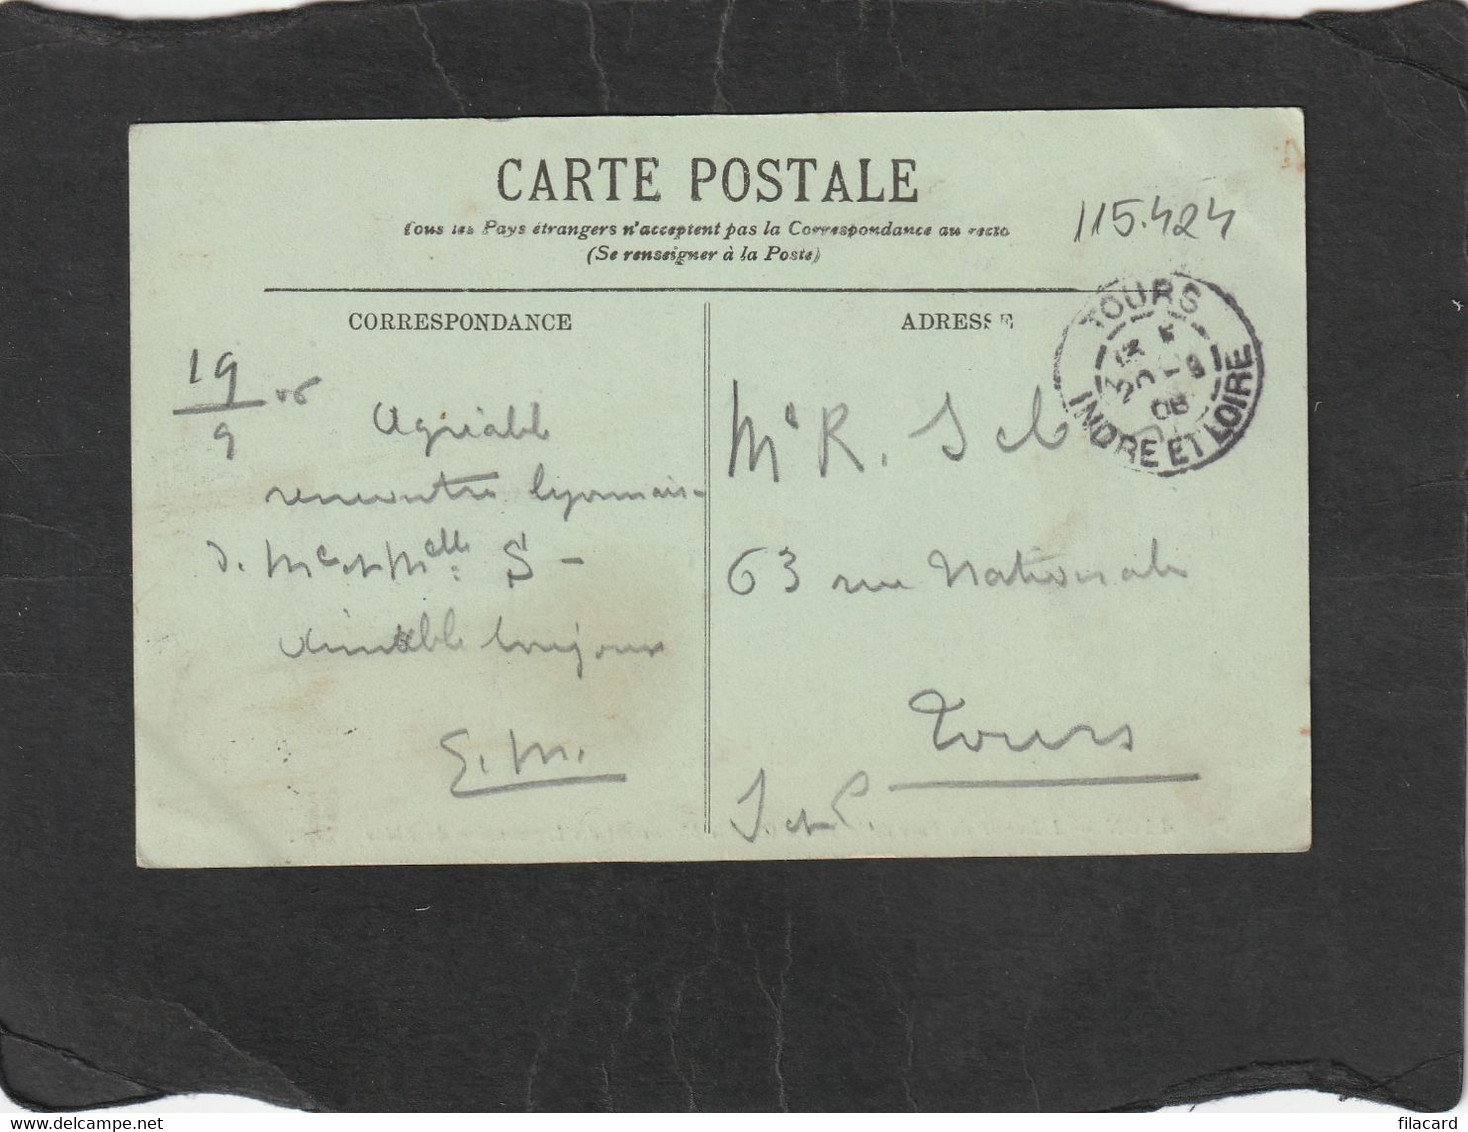 CARTE POSTALE
Tous les Pays étrangers n'acceptent pas la Correspondance au recto
(Se renseigner à la Poste)
115.424
CORRESPONDANCE
ADRESSE
TOURS
20 - 9
06
INDRE ET LOIRE
19/9 06
Agréable
rencontre lyonnaise
d. Me et Melle S -
Aimable toujours
E. M.
Me R. Sel
63 rue Nationale
Tours
I et L.
filacard